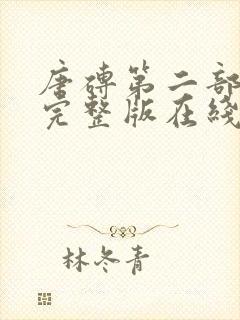 唐砖第二部
完整版在线
林冬青